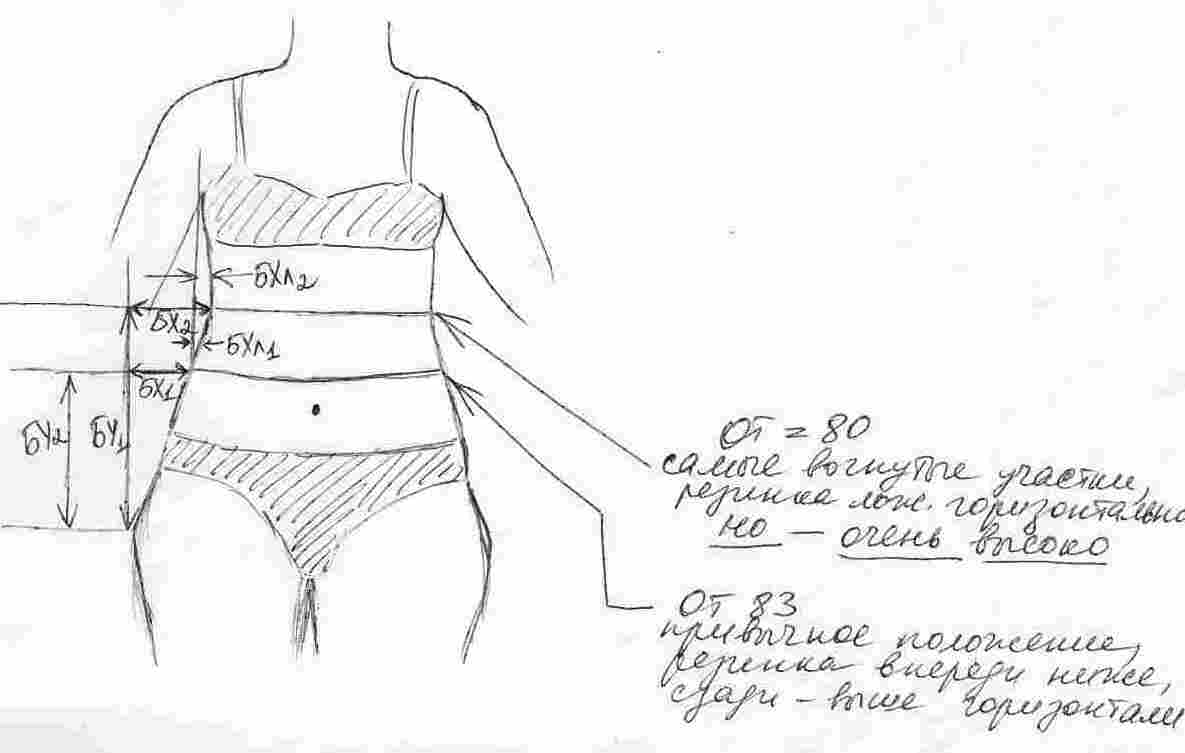 БХл2
БХ2
БХл1
БХ1
БУ2
БУ1
ОТ = 80
самые вогнутые участки,
резинка лож. горизонтально
но – очень высоко
ОТ 83
привычное положение,
резинка впереди ниже,
сзади – выше горизонтали